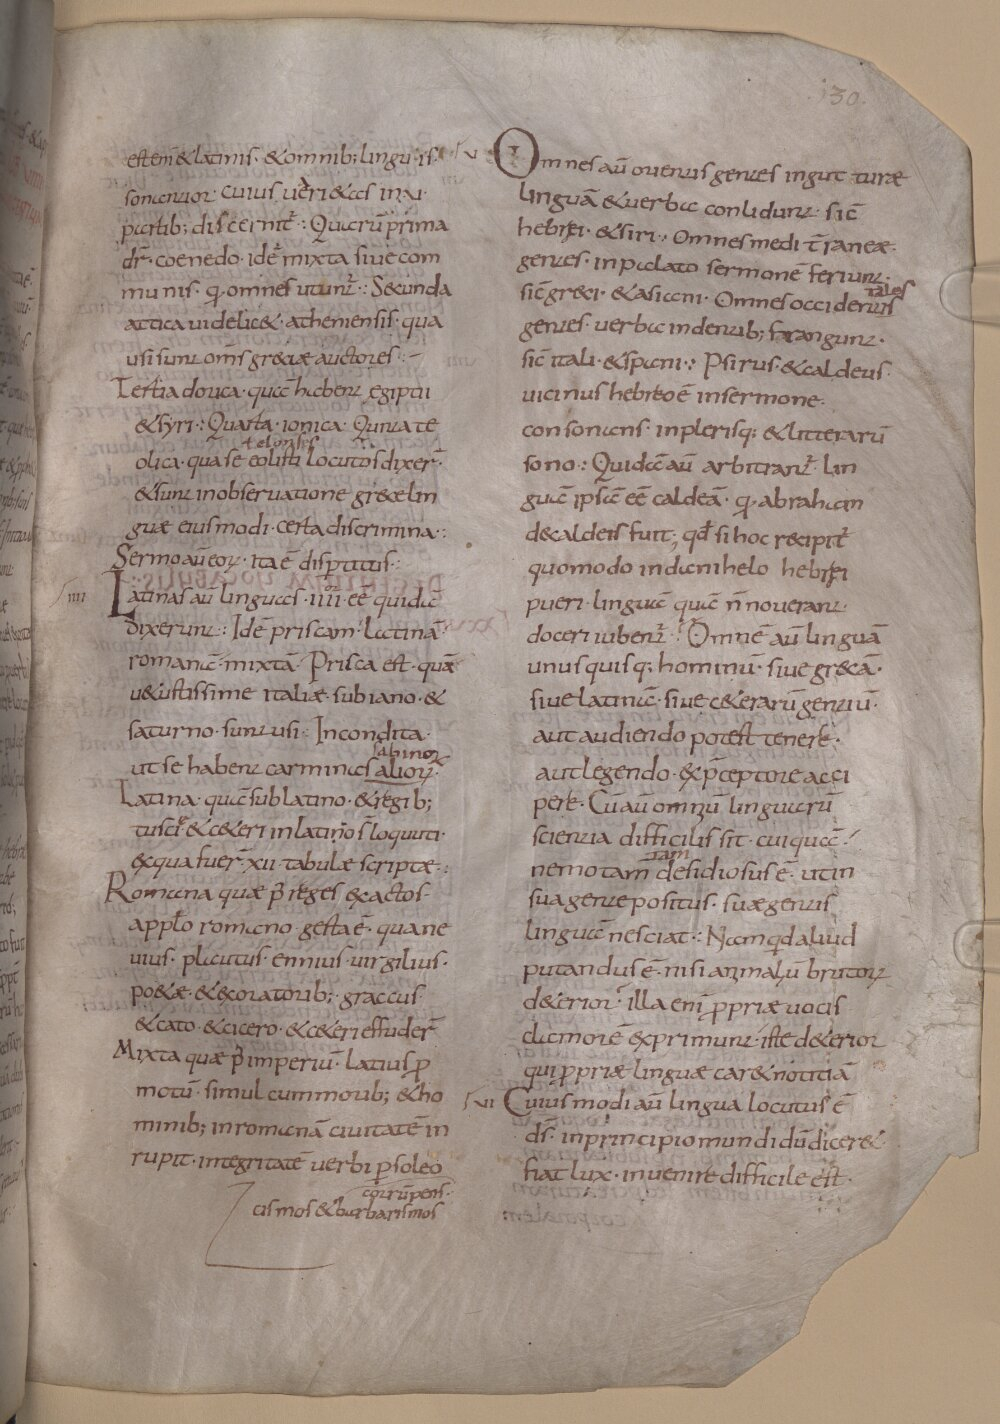 130.
est enī & latinis · & omnib; lingu is
sonantior cuius uari&as in v
partib; discernit᷑ : Quarū prima
dr̄ · coenedo · idē mixta siue com
munis · q̄ omnes utunt᷑ : Secunda
attica uidelic& · atheniensis · qua
usi sunt om̄s greciæ auctores :
Tertia dorica · quā habent egiptii
& syri : Quarta · ionica · Quinta e
t elonsis
olica · qua se eolisti locutos dixer̄
& sunt in obseruatione grecæ lin
guæ eiusmodi · certa discrimina :
Sermo aū eoꝝ · ita ē disptitus :
iiii Latinas aū linguas · iiii · eē quidā
dixerunt : Idē priscam · Latinā
romanā · mixtā · Prisca est · quā
u&ustissime italiæ · sub iano · &
saturno · sunt usi : Incondita ·
sabinoꝝ
ut se habent carmina salioꝝ ·
Latina · quā sub latino · & regib;
tusci & c&eri in latiṅo s̄ loquuti ·
ex qua fuer̄ · xii · tabulæ scriptæ :
Romana quæ p̄ reges exactos
a pplo romano gesta ē · qua ne
uius · plautus · ennius · uirgilius ·
po&æ · & ex oratorib; graccus
& cato · & cicero · & c&eri effuder̄
Mixta quæ p̄ imperiū · latius ꝓ
motū · simul cum morib; & ho
minib; in romanā ciuitatē in
rupit · integritatē uerbi ꝑ soleo
corrūpens ·
cismos & barbarismos
xi Omnes aū orientis gentes in gut turæ
linguā & uerba conlidunt · sic̄
hebrei · & siri : Omnes medi t̄raneæ
gentes · in palato sermonē feriunt ·
tales
sic̄ greci · & asiani · Omnes occidentis
gentes uerba in dentib; frangunt ·
sic̄ itali · & spani : Psirus · & caldeus
uicinus hebreo ē in sermone ·
consonans · in plerisq; & litterarū
sono : Quidā aū arbitrant᷑ · lin
guā ipsā eē caldeā · q̄ abraham
de caldeis fuit, qđ si hoc recipit᷑
quomodo in danihelo hebrei
pueri · linguā quā n̄ nouerant
doceri iubent᷑ : Omnē aū linguā
unus quisq; hominū · siue grecā ·
siue latinā · siue c&erarū gentiū ·
aut audiendo potest tenere ·
aut legendo · & p̄ceptore acci
pere · Cū aū omniū linguarū
scientia difficilis sit · cui quā
iam
nemo tam̄ desidiosus ē · ut in
sua gente positus · suæ gentis
linguā nesciat : Nam qđ aliud
putandus ē · nisi animaliū brutoꝝ
d&erior ? illa enī ꝓpriæ uocis
clamorē exprimunt · iste d&erior
qui ꝓpriæ linguæ car& notitiā
xii Cuius modi aū lingua locutus ē
ds̄ · in principio mundi dū dicer&
fiat lux · inuenire difficile est ·